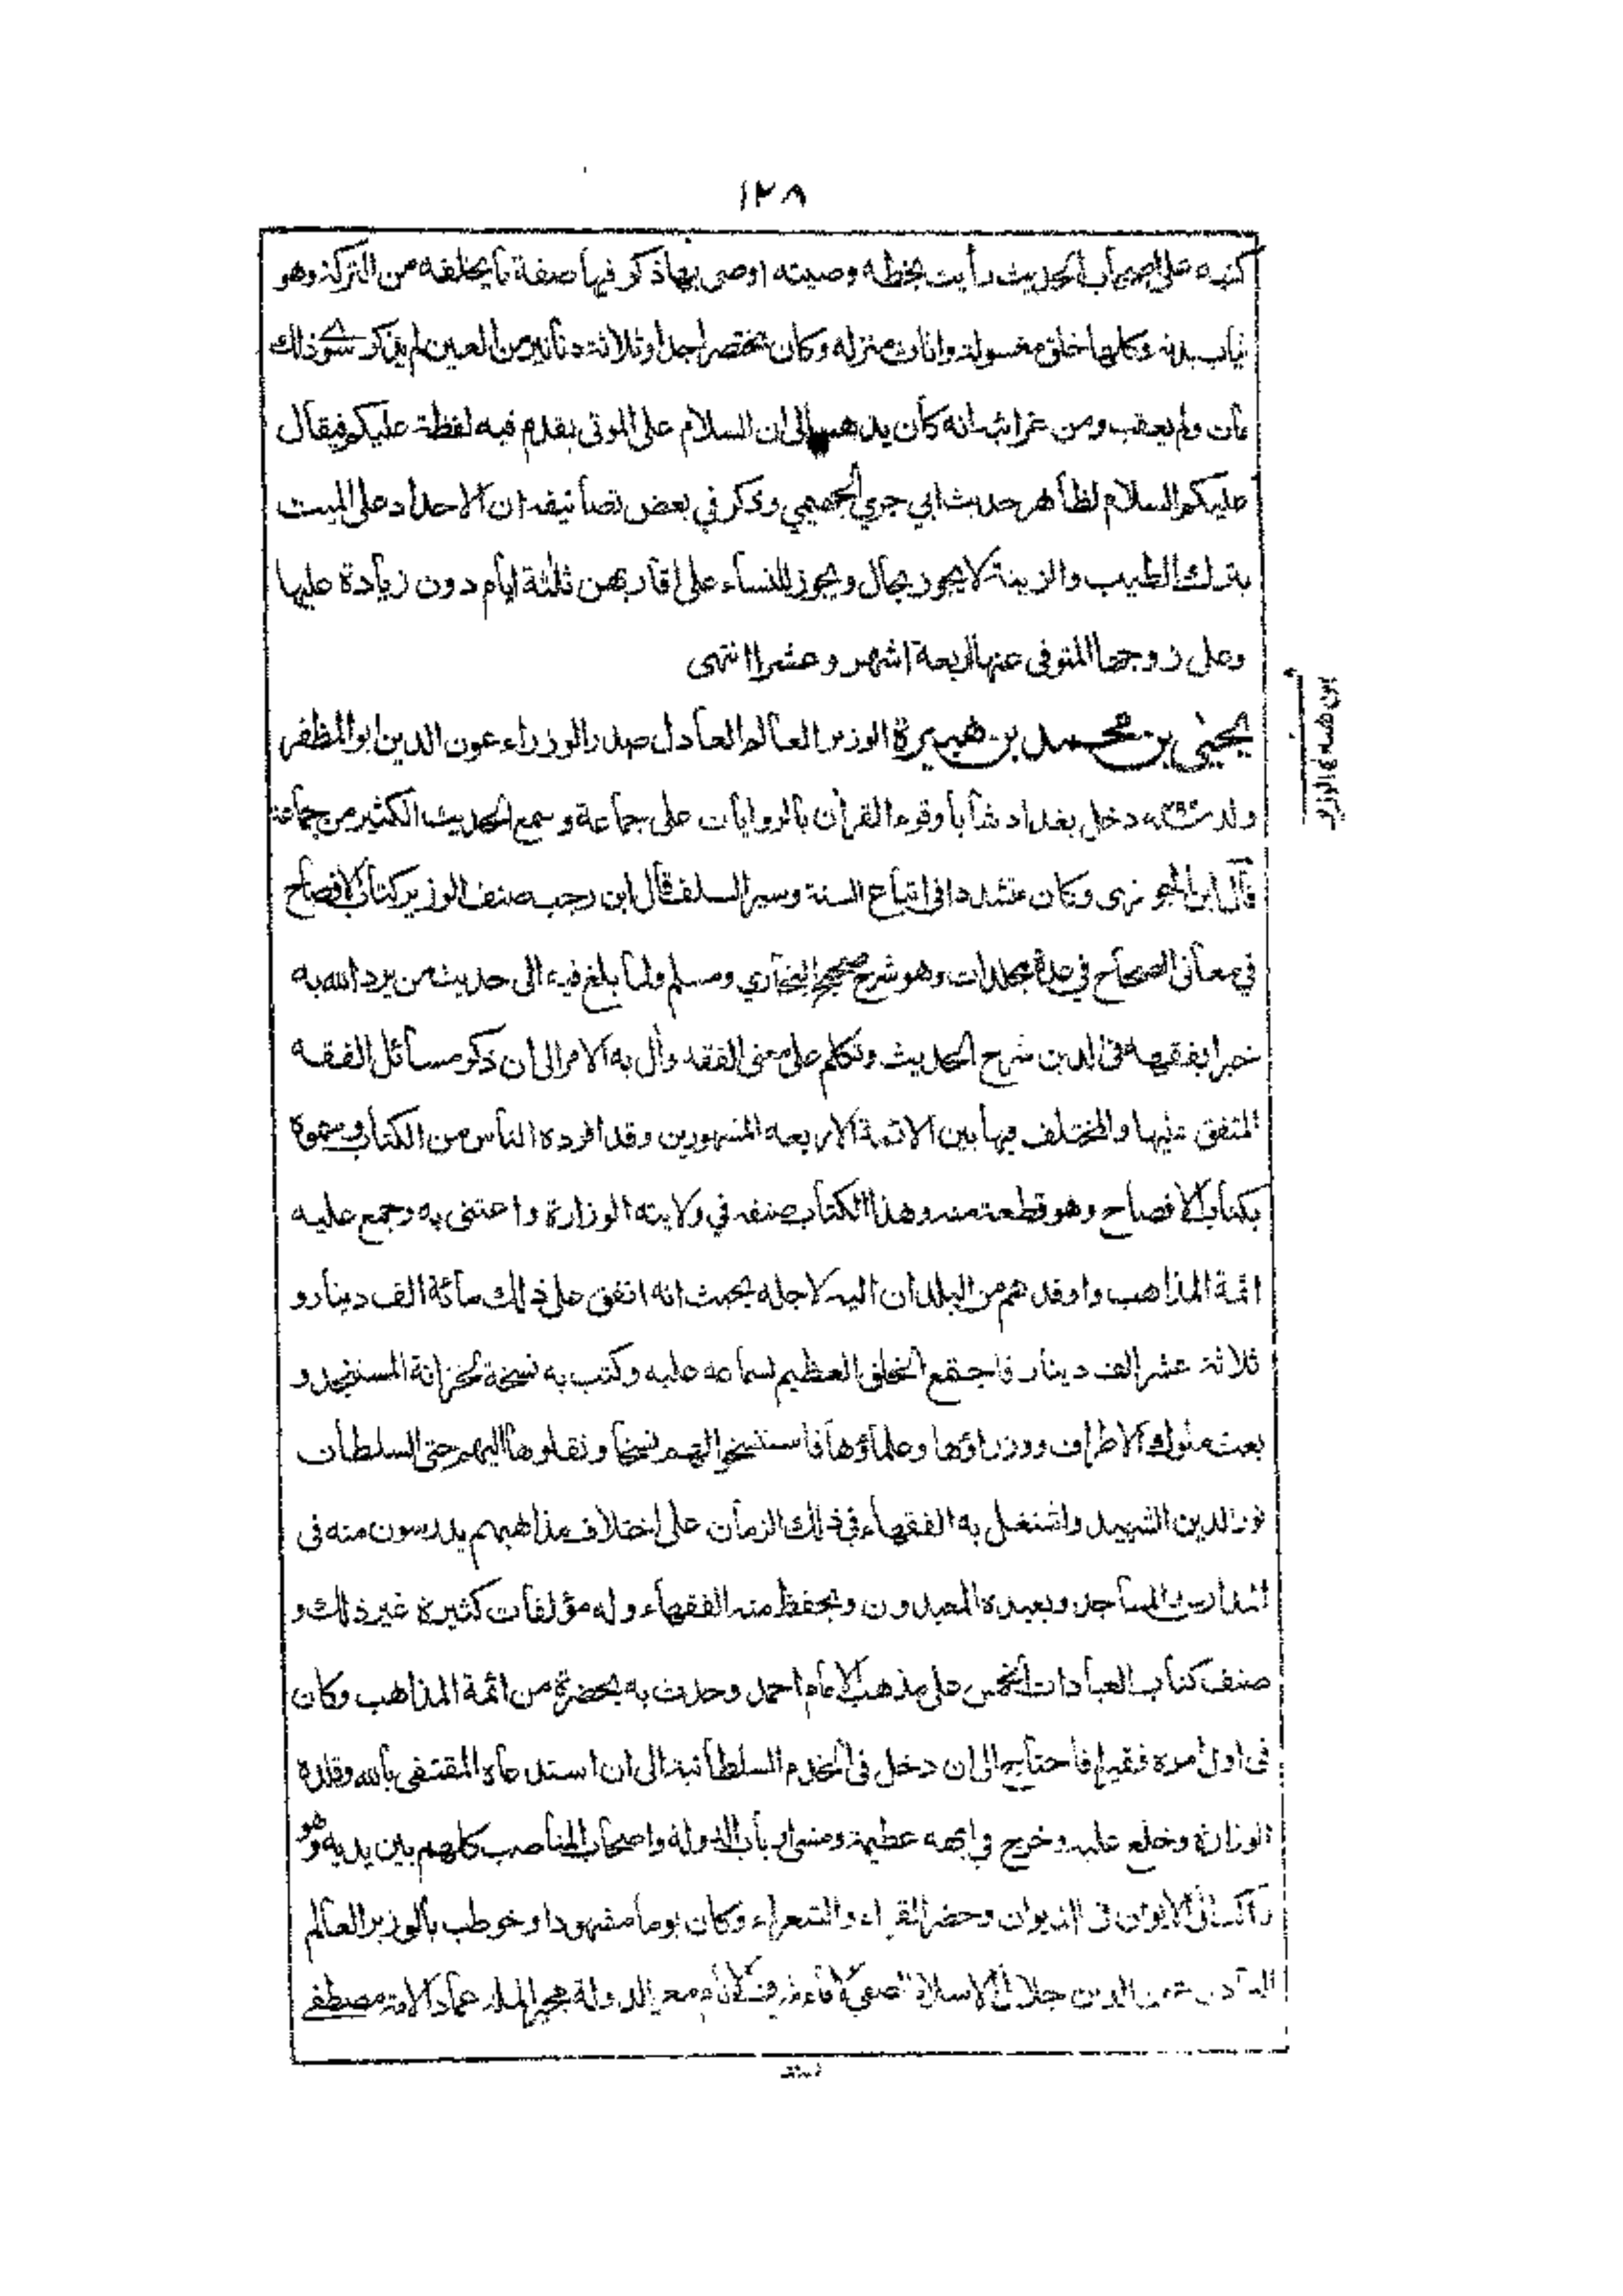 ١٢٨
كتبه على اصحاب الحديث رأيت بخطه وصيته اوصى بها ذكر فيها صفة ما يخلفه من التركة وهو
ثياب بدنه وكلها خلق مغسولة واثاث منزله وكان مختصرا جدا وثلاثة دنانير من العين لم يذكر سوى ذلك
مات ولم يعقب ومن غرائبه انه كان يذهب الى ان السلام على الموتى يقدم فيه لفظة عليكم فيقال
عليكم السلام لظاهر حديث ابي جري الهجيمي وذكر في بعض تصانيفه ان الاحداد على الميت
بترك الطيب والزينة لا يجوز بحال ويجوز للنساء على اقاربهن ثلثة ايام دون زيادة عليها
وعلى زوجها المتوفى عنها اربعة اشهر وعشرا انتهى
يحيى بن محمد بن هبيرة الوزير العالم العادل صدر الوزراء عون الدين ابو المظفر
ولد دخل بغداد شابا وقرء القران بالروايات على جماعة وسمع الحديث الكثير من جماعة
قال ابن الجوزى وكان متشددا فى اتباع السنة وسير السلف قال ابن رجب صنف الوزير كتاب الافصاح
في معانى الصحاح في عدة مجلدات وهو شرح صحيح البخاري ومسلم ولما بلغ فيه الى حديث من يرد الله به
خيرا يفقهه فى الدين شرح الحديث وتكلم على معنى الفقه وأل به الامر الى ان ذكر مسائل الفقه
المتفق عليها والمختلف فيها بين الائمة الاربعه المشهورين وقد افرده الناس من الكتاب وسموه
بكتاب الافصاح وهو قطعة منه وهذا الكتاب صنفه في ولايته الوزارة واعتنى به وجمع عليه
ائمة المذاهب واوفدهم من البلدان اليه لاجله بحيث انه انفق على ذلك مائة الف دينار و
ثلاثة عشر الف دينار فاجتمع الخلق العظيم لسماعه عليه وكتب به نسخة لخزانة المستنجد و
بعث ملوك الاطراف ووزراؤها وعلماؤها فاستنسخوا لهم نسخا ونقلوها اليهم حتى السلطان
نور الدين الشهيد واشتغل به الفقهاء في ذلك الزمان على اختلاف مذاهبهم يدرسون منه فى
المدارس والمساجد ويعيده المعيدون ويحفظ منه الفقهاء وله مؤلفات كثيرة غير ذلك و
صنف كتاب العبادات الخمس على مذهب الامام احمد وحدث به بحضرة من ائمة المذاهب وكان
فى اول امره فقيرا فاحتاج الى ان دخل فى الخدم السلطانية الى ان استدعاه المقتفى بالله وقلده
الوزارة وخلع عليه وخرج في ابهه عظيمة ومشى ارباب الدولة واصحاب المناصب كلهم بين يديه وهو
راكب الى الايوان فى الديوان وحضر القراء والشعراء وكان يوما مشهودا وخوطب بالوزير العالم
العادل عون الدين جلال الاسلام صفي الامام شرف الانام معز الدولة مجير الملة عماد الامة مصطفى
ابن هبيرة الوزير